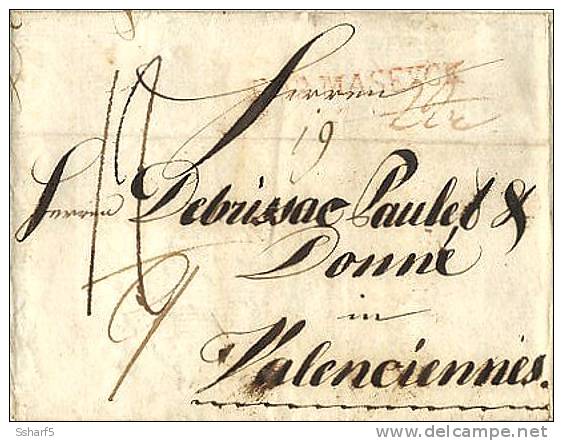 MASEYCK
Herren
19
Herren Debrissac Paulet &
Donné
in
Valenciennes.
Scharf5
www.delcampe.net